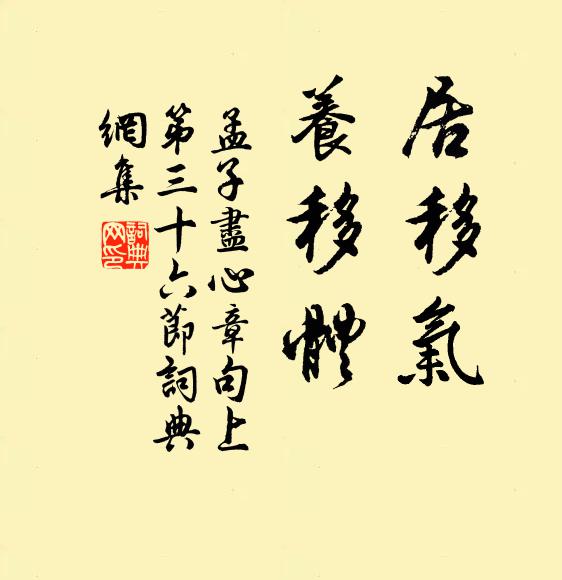 居移氣
養移體
孟子盡心章句上
第三十六節詞典
網集
詞典网印